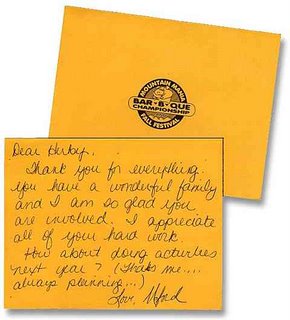 MOUNTAIN MANIA
BAR-B-QUE
CHAMPIONSHIP
FALL FESTIVAL
Dear Herby,
Thank you for everything.
You have a wonderful family
and I am so glad you
are involved. I appreciate
all of your hard work.
How about doing activities
next year? (Thats me....
always planning...)
Love,